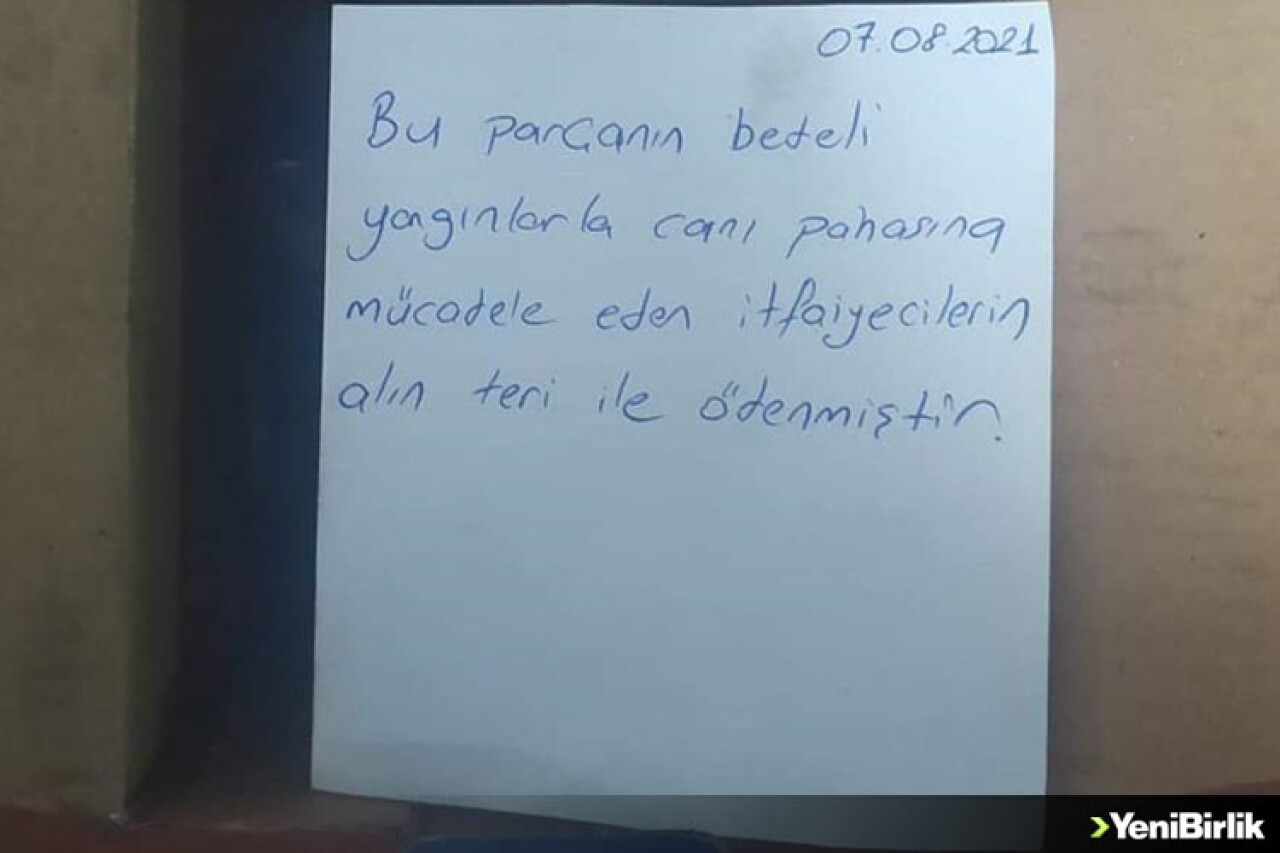 07.08.2021
Bu parçanın bedeli
yangınlarla canı pahasına
mücadele eden itfaiyecilerin
alın teri ile ödenmiştir.
YeniBirlik